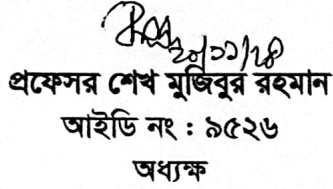 ২০/১১/২৪
প্রফেসর শেখ মুজিবুর রহমান
আইডি নং : ৯৫২৬
অধ্যক্ষ